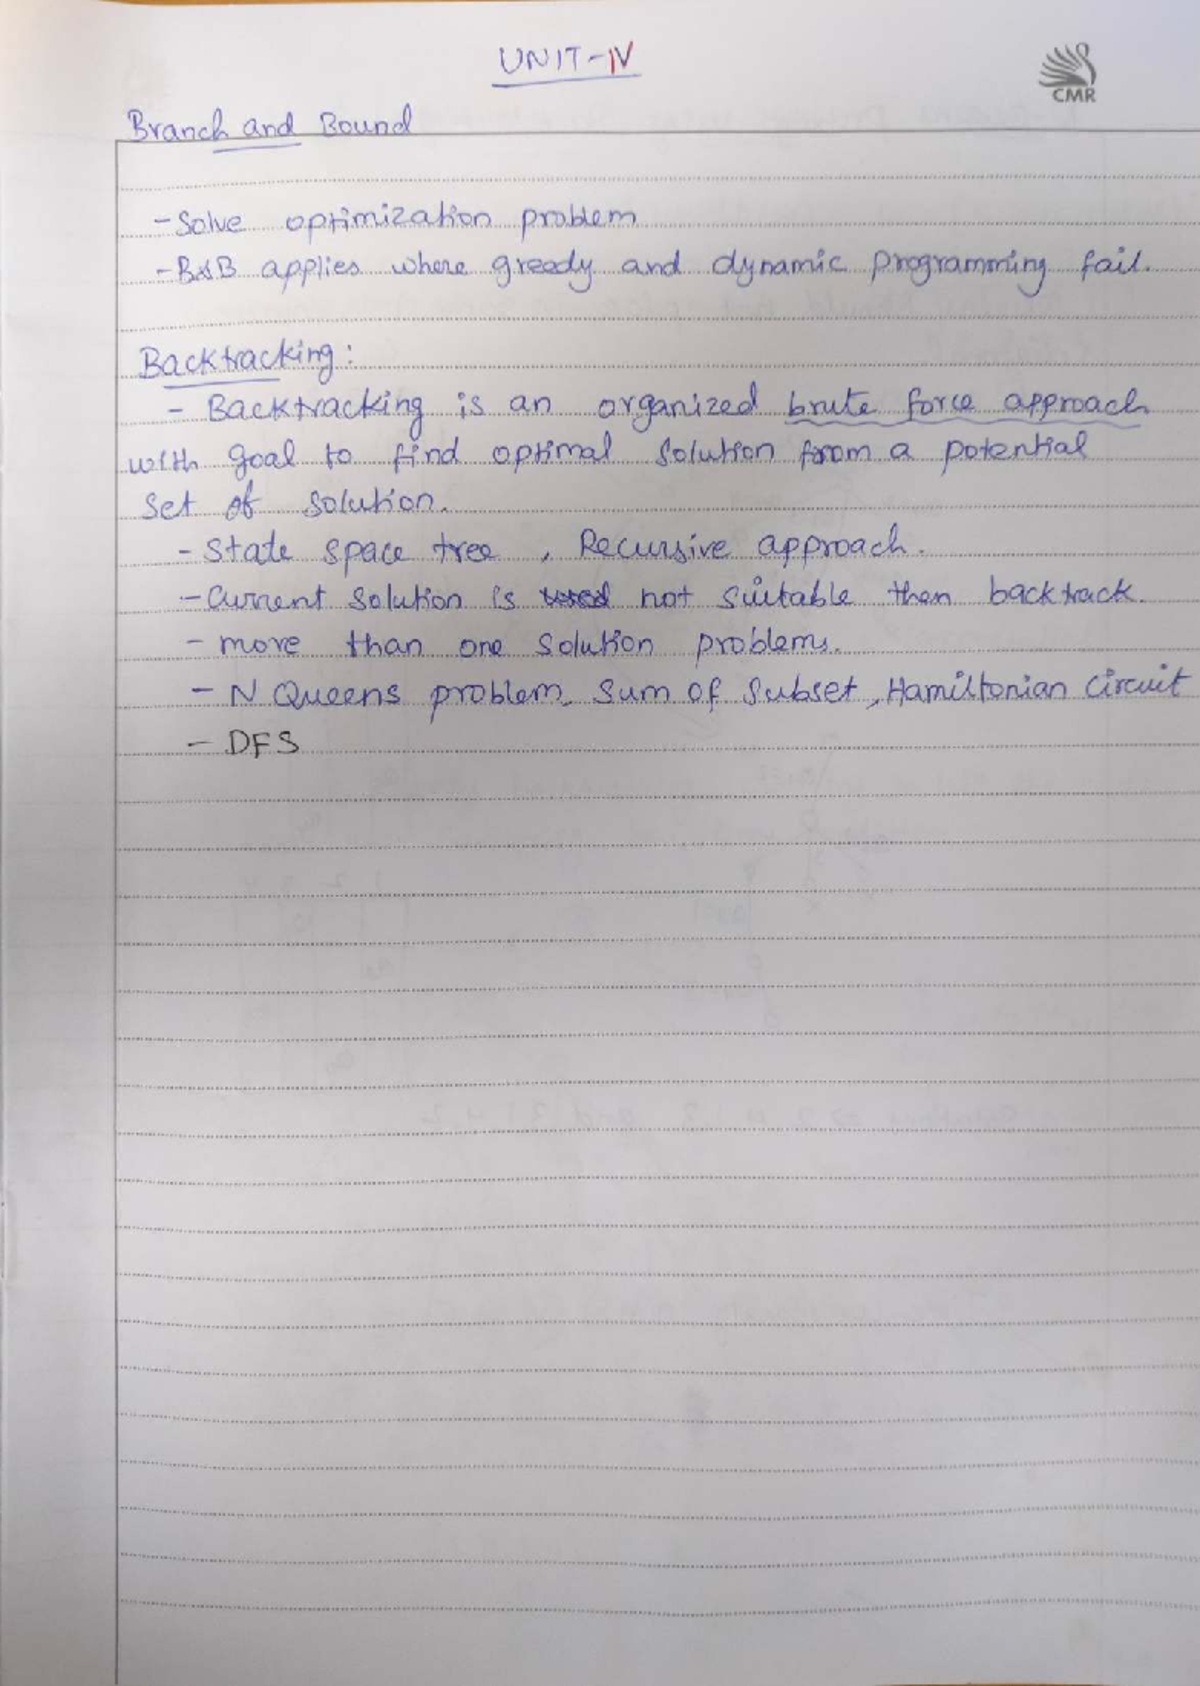 UNIT-IV
CMR
Branch and Bound
- Solve optimization problem
- B&B applies where gready and dynamic programming fail.
Backtracking:
- Backtracking is an organized brute force approach
with goal to find optimal solution from a potential
set of solution.
- State space tree , Recursive approach.
- Current solution is not suitable then backtrack.
- more than one solution problems.
- N Queens problem, Sum of Subset, Hamiltonian Circuit
- DFS